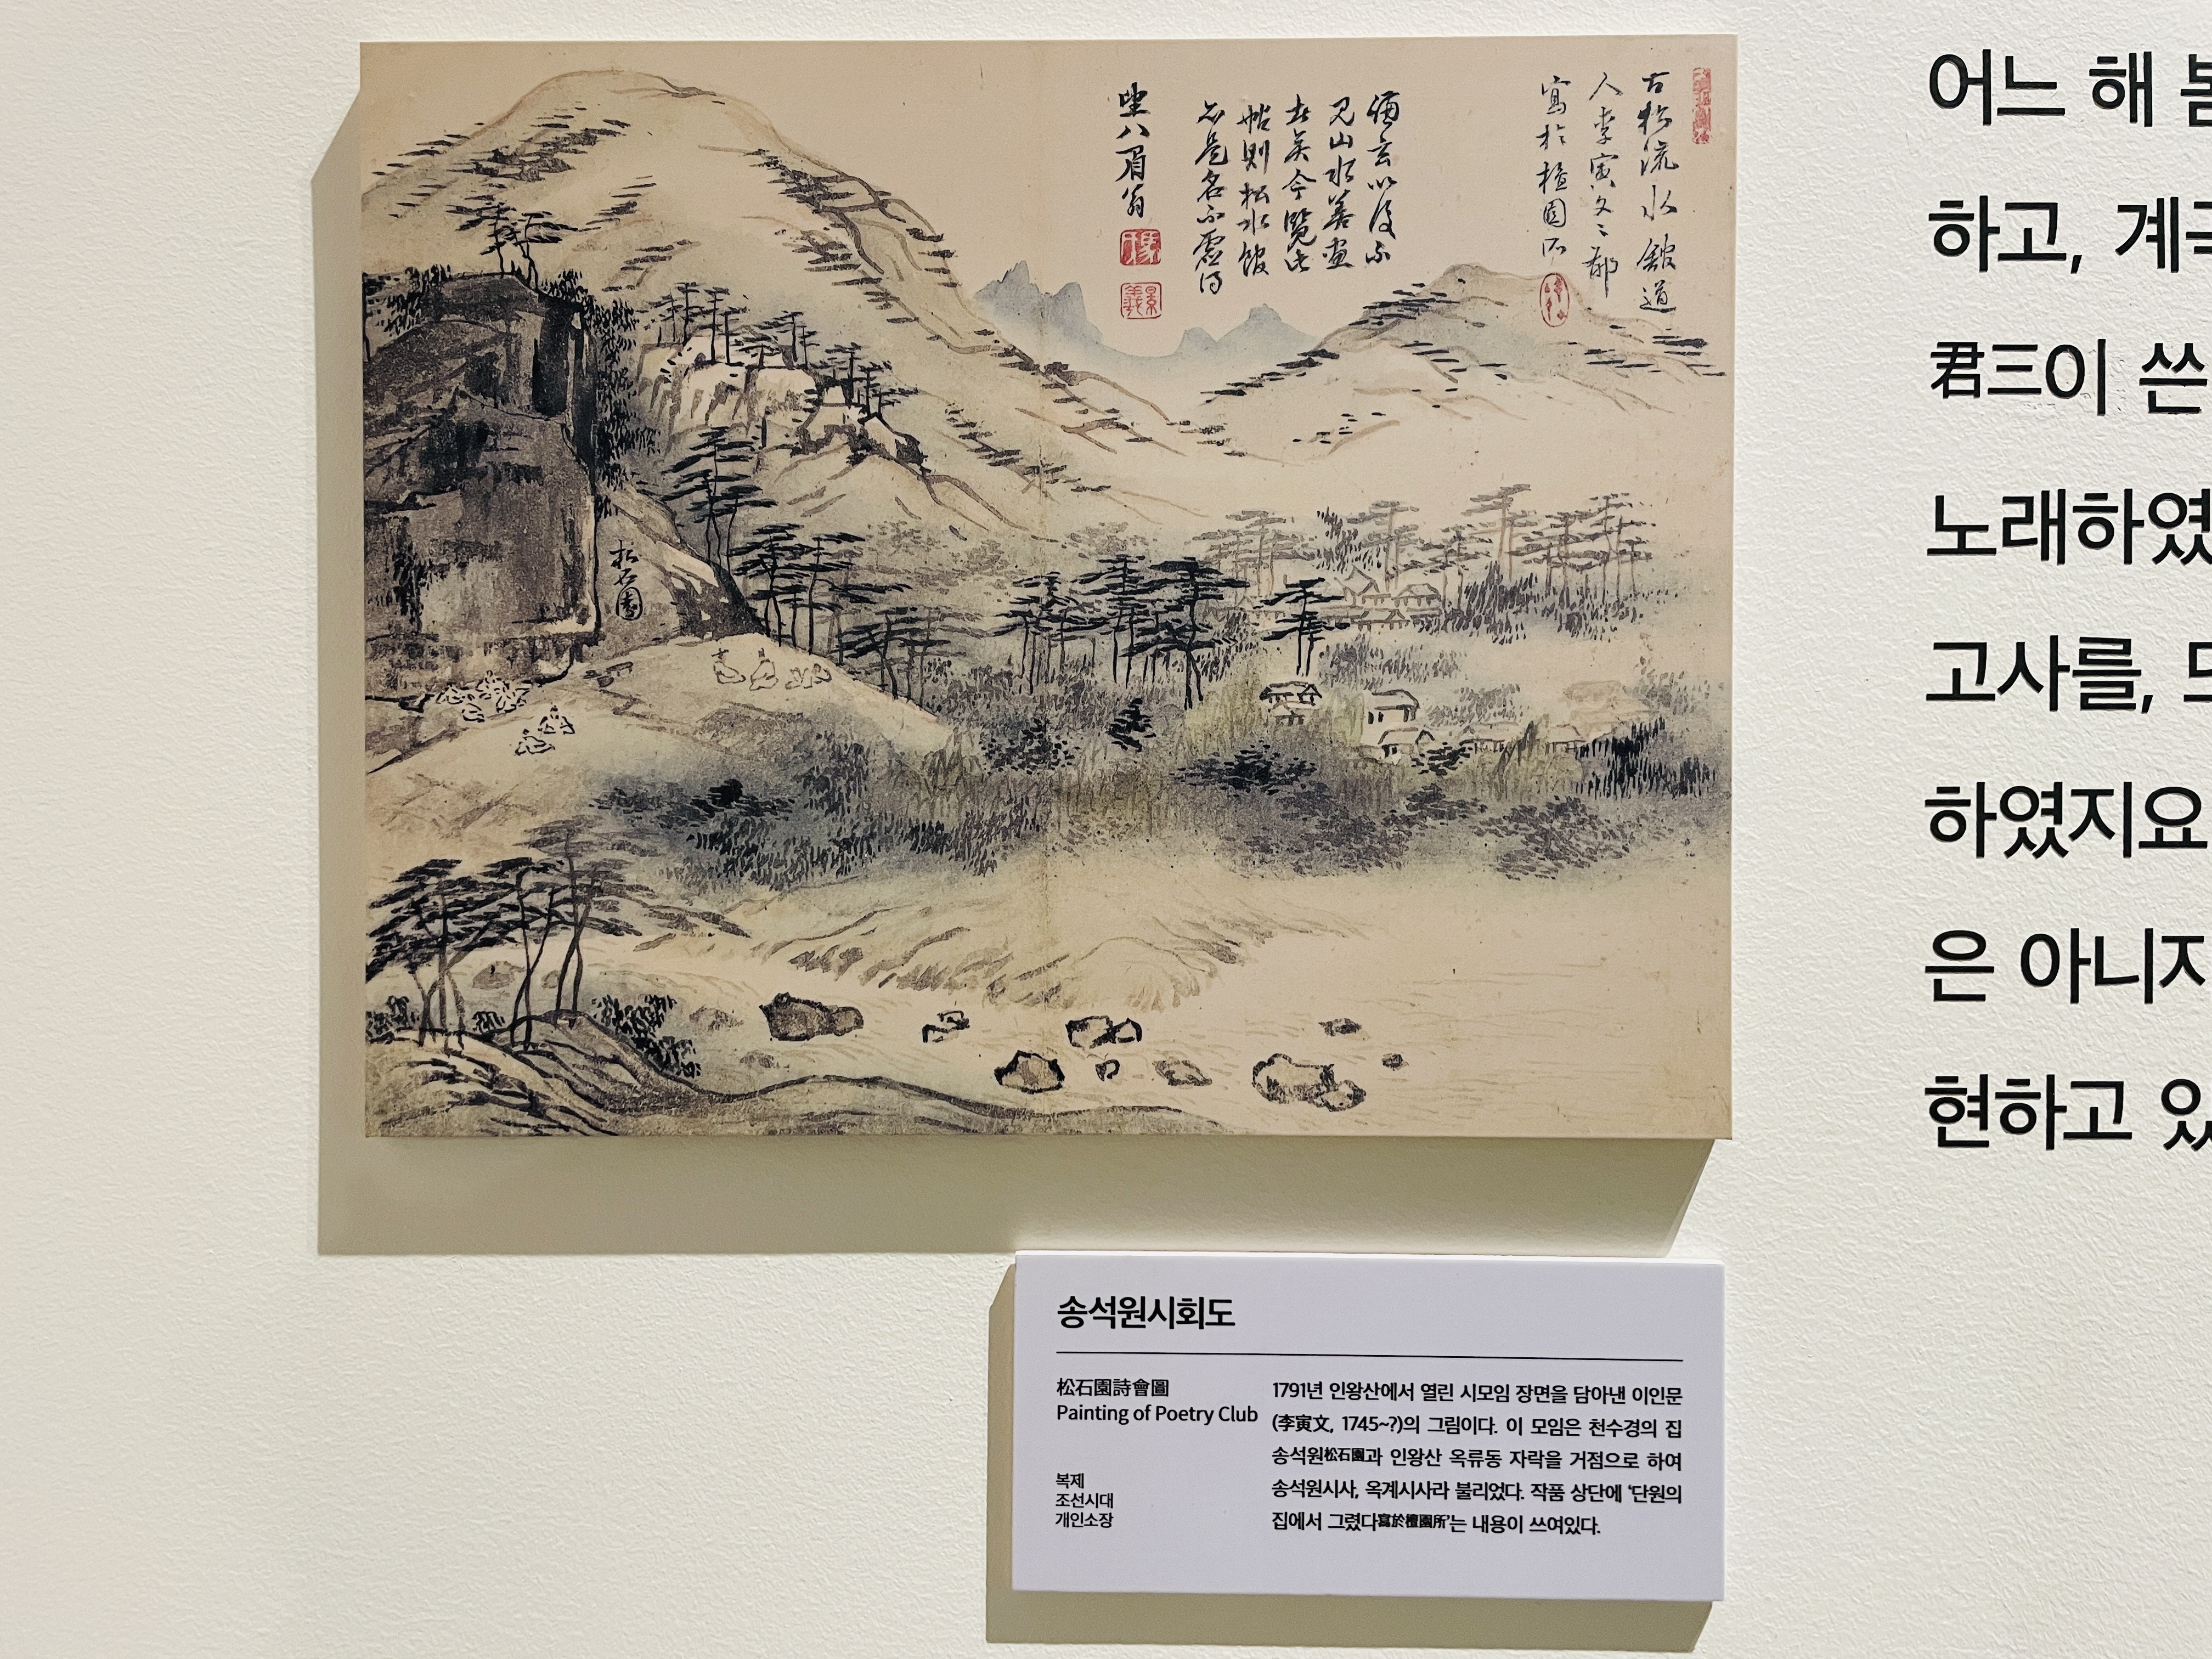 古松流水館道
人李寅文文郁
寫於檀園所
僊玄以後不
見山水善畫
古矣今覽此
帖則松水館
名不虛得
眉翁
松石園
어느 해
하고,
君三이 쓴
노래하였
고사를,
하였지요
은 아니지
현하고 있
송석원시회도
松石園詩會圖
Painting of Poetry Club
복제
조선시대
개인소장
1791년 인왕산에서 열린 시모임 장면을 담아낸 이인문
(李寅文, 1745~?)의 그림이다. 이 모임은 천수경의 집
송석원松石園과 인왕산 옥류동 자락을 거점으로 하여
송석원시사, 옥계시사라 불리었다. 작품 상단에 ‘단원의
집에서 그렸다寫於檀園所’는 내용이 쓰여있다.